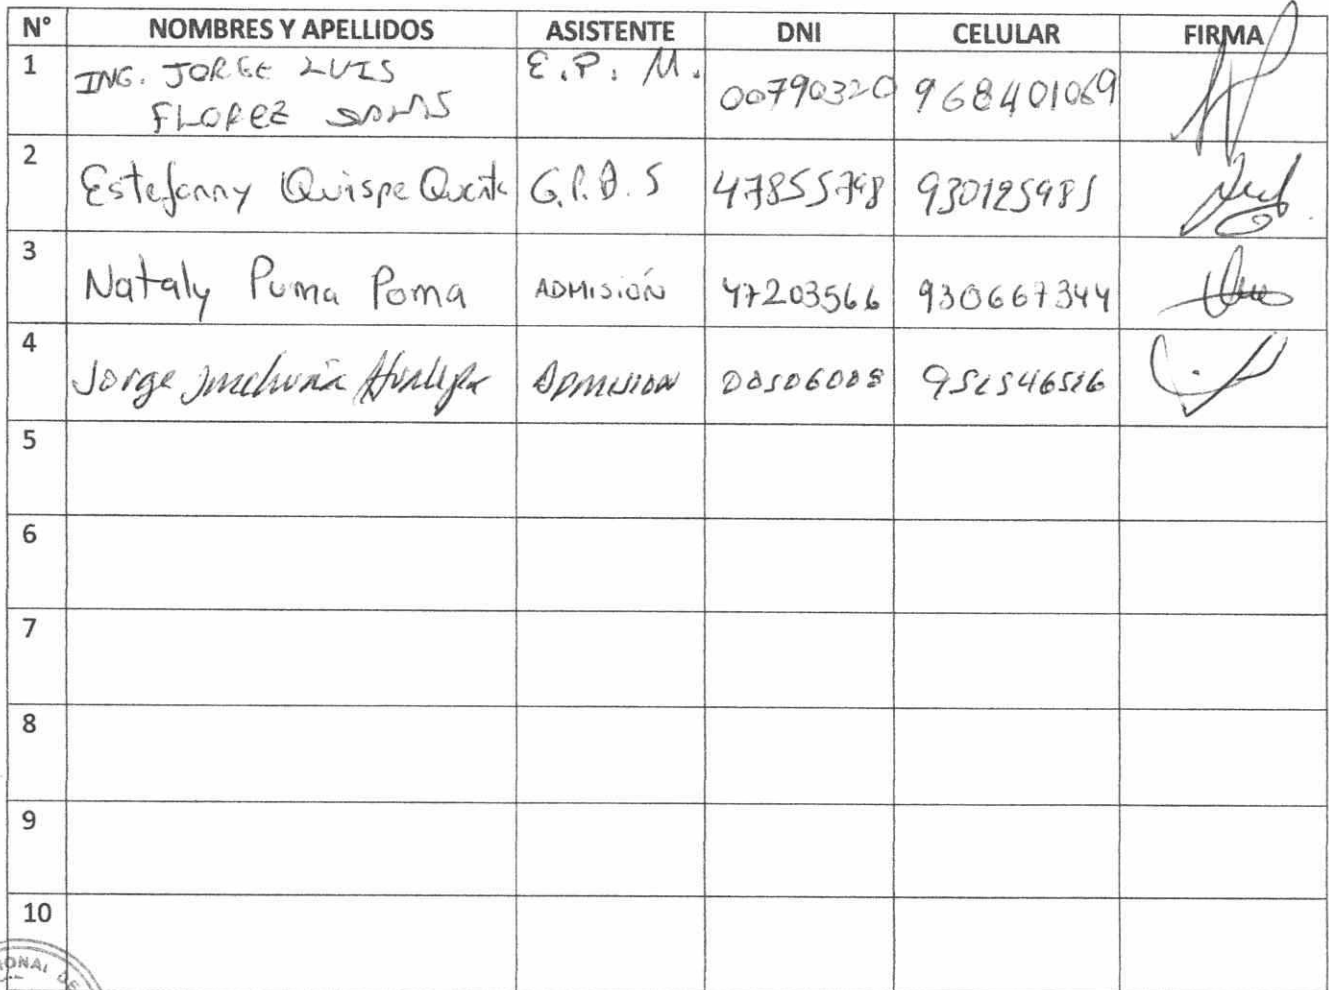 N° NOMBRES Y APELLIDOS ASISTENTE DNI CELULAR FIRMA
1 ING. JORGE LUIS E.P.M. 00790320 968401069
FLOREZ SALAS
2 Estefanny Quispe G.P.D.S 47855798 930125985
3 Nataly Puma Poma ADMISIÓN 47203566 930667344
4 Jorge ADMISION 00506008 952546516
5
6
7
8
9
10
IONAL DE